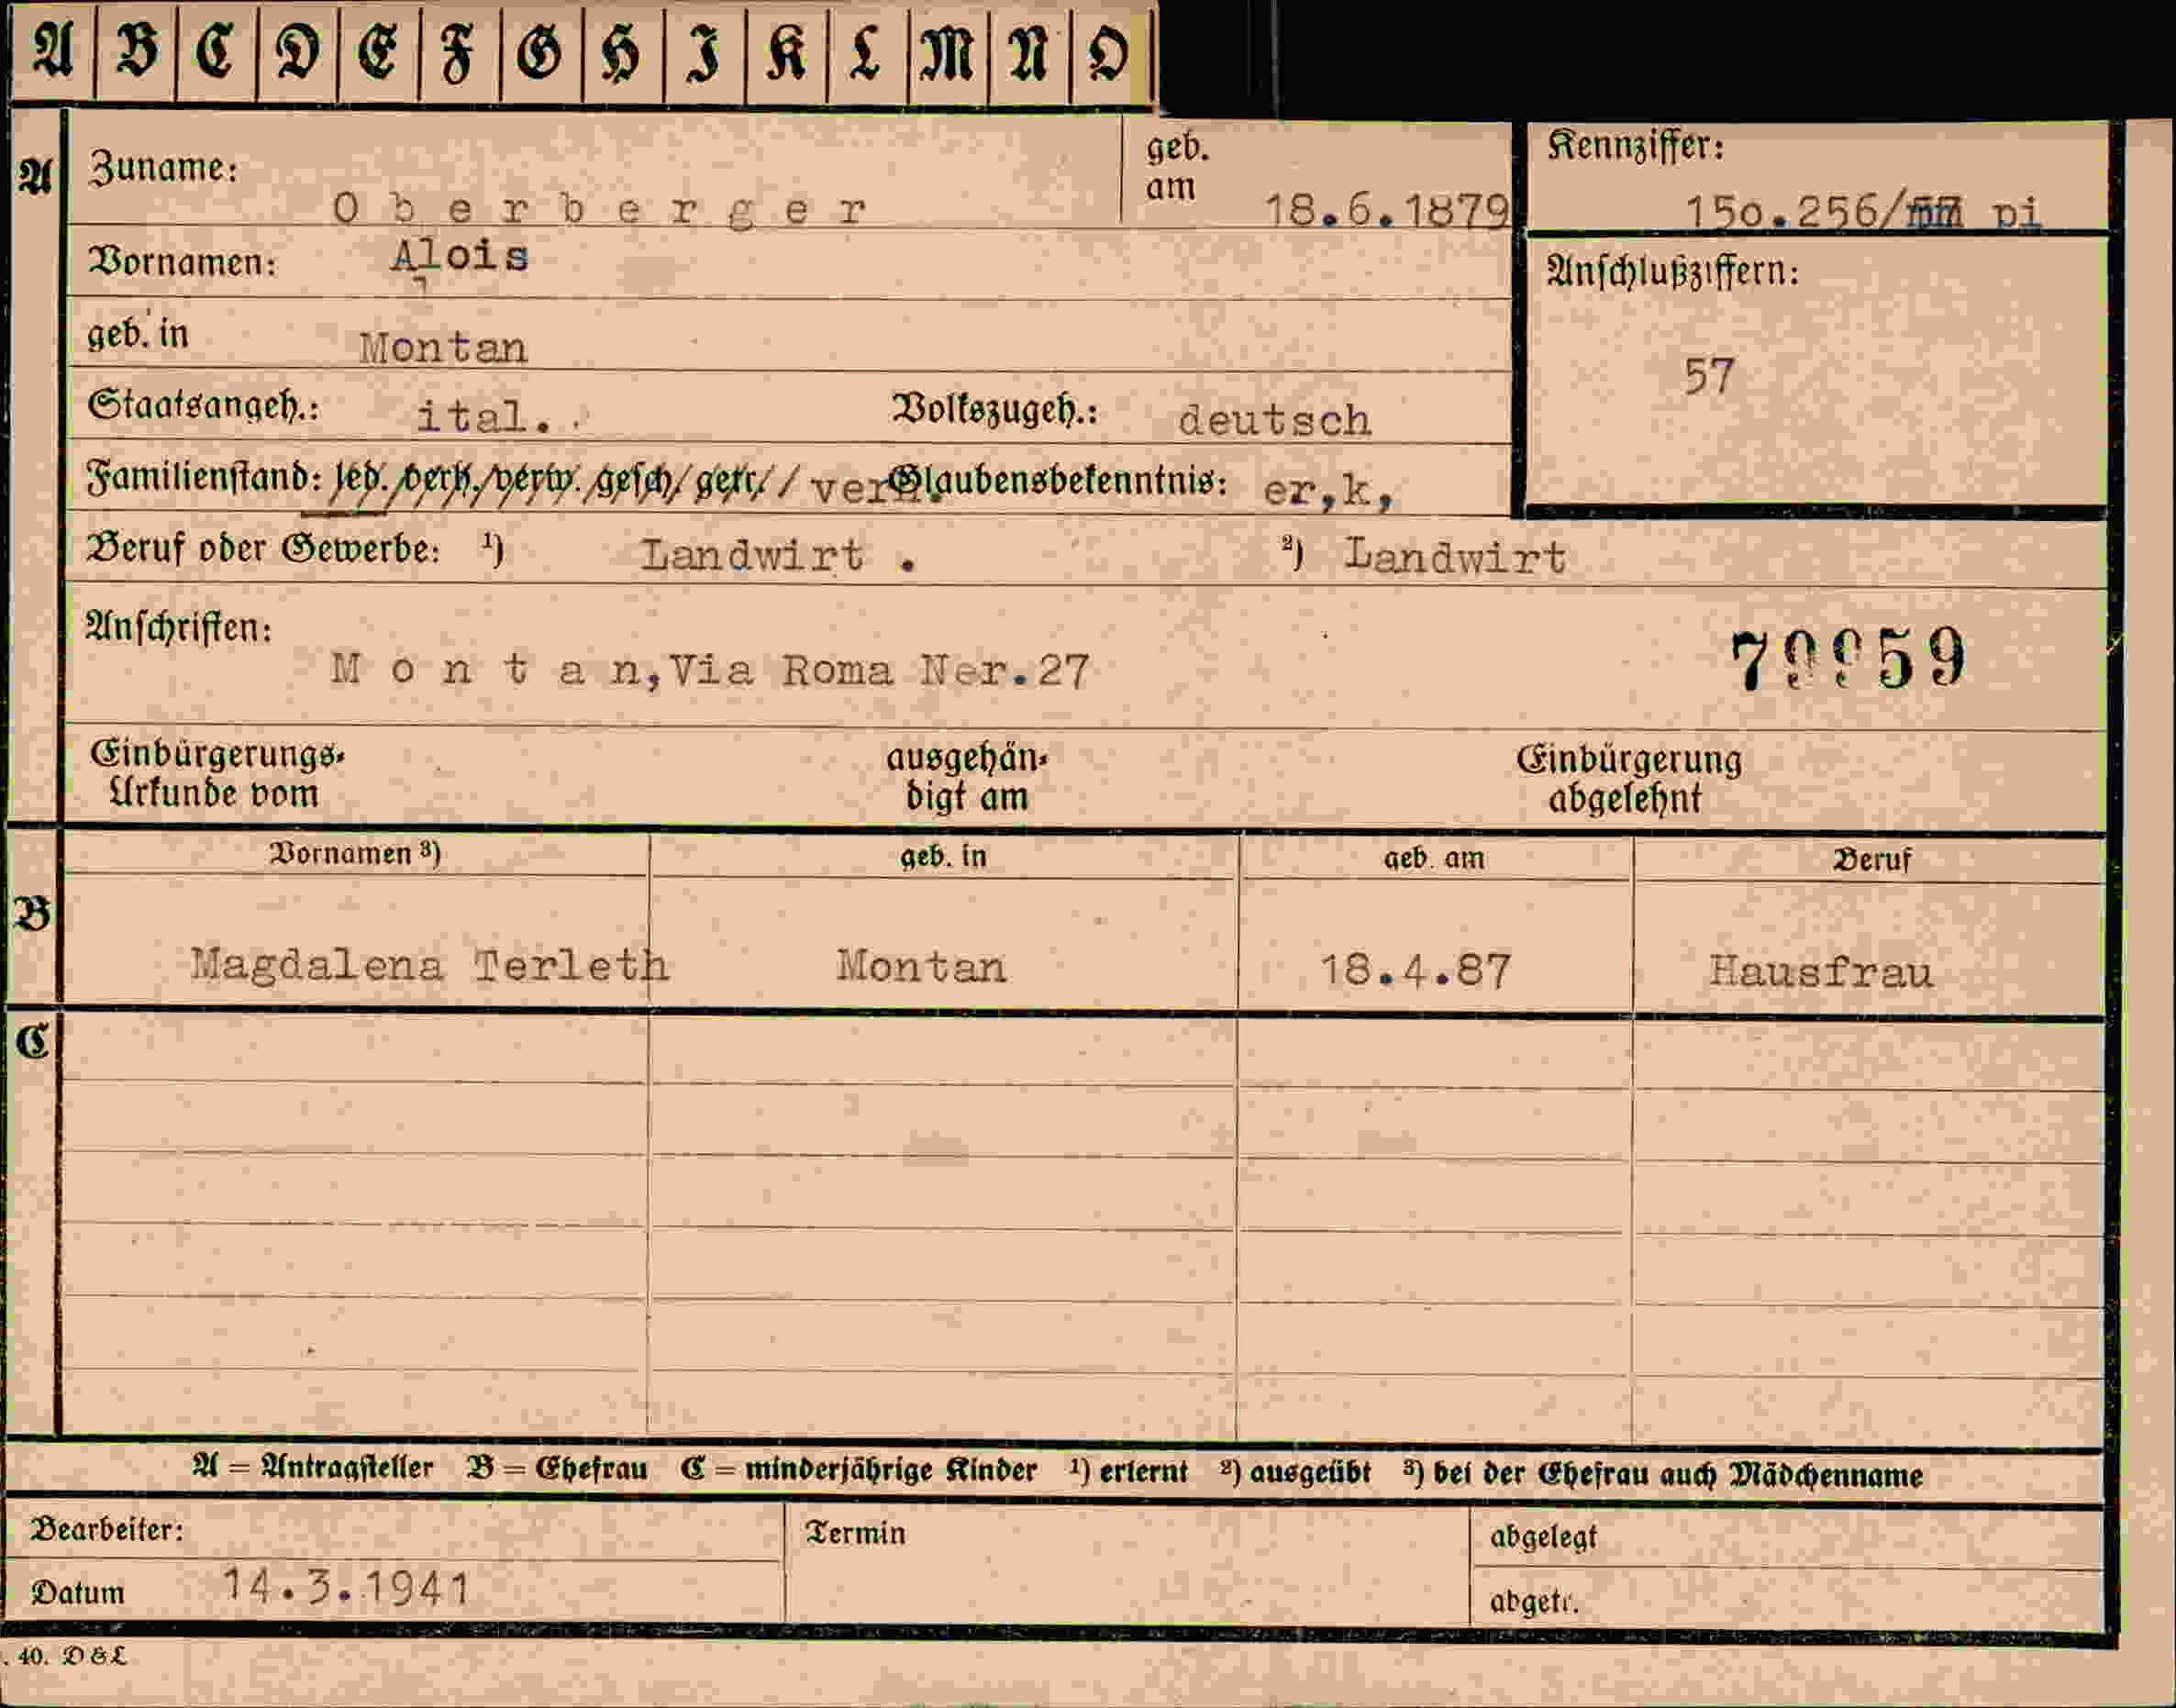 A B C D E F G H I K L M N O
A
Zuname: Oberberger
geb. am 18.6.1879
Kennziffer: 15o.256/ pi
Vornamen: Alois
Anschlußziffern: 57
geb. in Montan
Staatsangeh.: ital.
Volkszugeh.: deutsch
Familienstand: led./verh./verw./gesch/getr// ver
Glaubensbekenntnis: er,k,
Beruf oder Gewerbe: 1) Landwirt . 2) Landwirt
Anschriften: Montan,Via Roma Ner.27
Einbürgerungs-Urkunde vom
ausgehändigt am
Einbürgerung abgelehnt
Vornamen 3) geb. in geb. am Beruf
B Magdalena Terleth Montan 18.4.87 Hausfrau
C
A = Antragsteller B = Ehefrau C = minderjährige Kinder 1) erlernt 2) ausgeübt 3) bei der Ehefrau auch Mädchenname
Bearbeiter: Termin abgelegt
Datum 14.3.1941 abgetr.
. 40. D & L